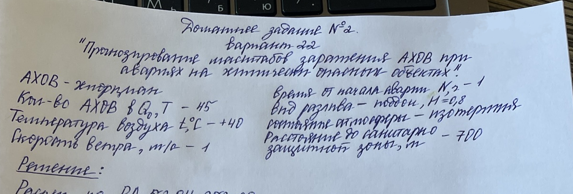 Домашнее задание №2.
вариант 22
"Прогнозирование масштабов заражения АХОВ при
авариях на химически опасных объектах."
АХОВ - хлорциан
Кол-во АХОВ в Q₀, Т - 45
Температура воздуха t,°C - +40
Скорость ветра, м/с - 1
Время от начала аварии N, г - 1
Вид разлива - поддон, H=0,8
состояние атмосферы - изотермия
Расстояние до санитарно
защитной зоны, м - 700
Решение: